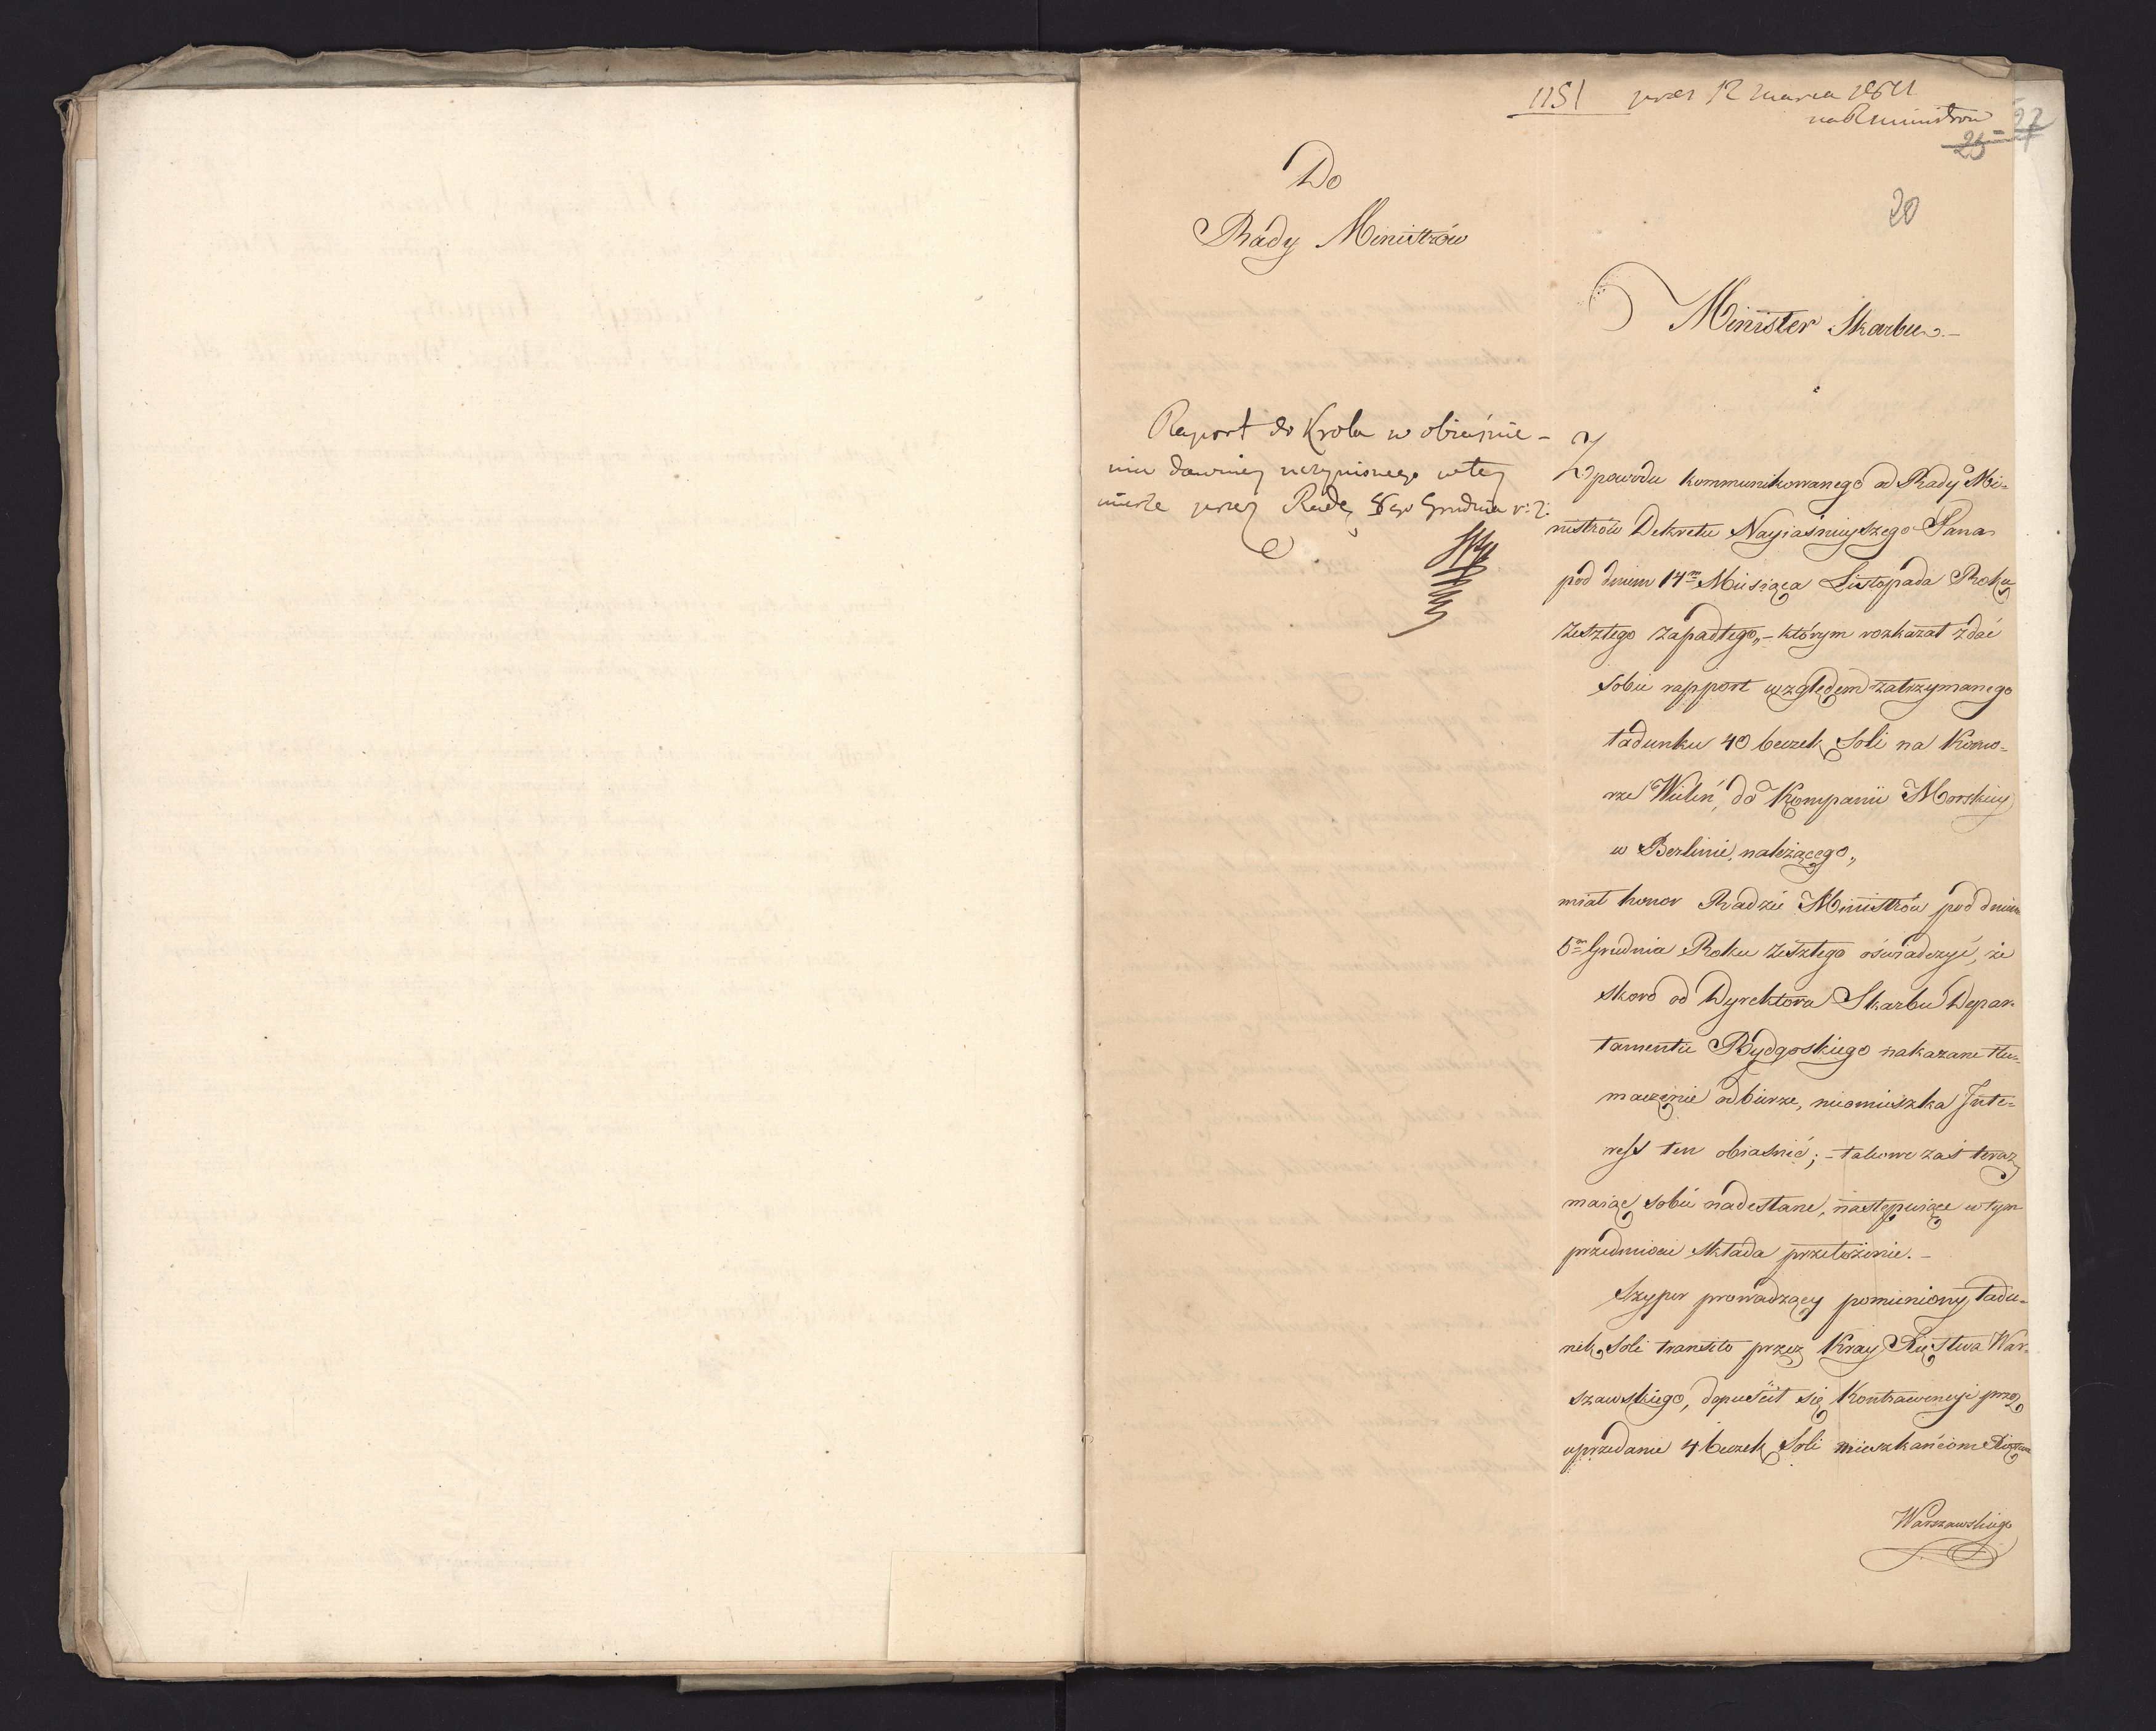 1151 prez 12 marca 1811
27
25
20
Do
Rady Ministrów
Minister Skarbu.–
Raport do Krola w obiaśnie-
niu dawniey uczynionego w tey
mierze przez Radę Grudnia r: z:
Z powodu kommunikowanego od Rady Mi-
nistrów Dekretu Nayiaśnieyszego Pana
pod dniem 14m Miesiąca Listopada Roku
Zeszłego zapadłego,, – którym rozkazał zdać
sobie rapport względem zatrzymanego
ładunku 40 beczek Soli na Komo-
rze Wieleń, do Kompanii Morskiey
w Berlinie, należącego,,
miał honor Radzie Ministrów pod dniem
5m Grudnia Roku Zeszłego oświadczyć, że
skoro od Dyrektora Skarbu Depar-
tamentu Bydgoskiego nakazane tłu-
maczenie odbierze, nieomieszka Inte-
ress ten obiasnić; – takowe zaś teraz
maiąc sobie nadesłane, następuiące w tym
przedmiocie składa przełożenie. –
Szyper prowadzący pomieniony ładu-
nek Soli transito przez Kray Xięstwa War-
szawskiego, dopuścił się Kontrawencyi przez
uprzedanie 4 beczek Soli mieszkańcom Xięstwa
Warszawskiego